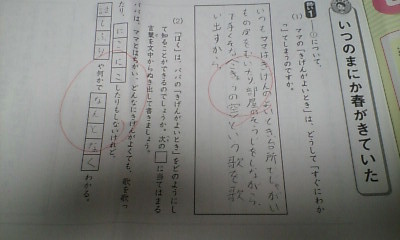 いつのまにか春がきていた
問1
(1) ――①について、
ママの「きげんがよいとき」は、どうして「すぐにわか
って」しまうのですか。
いつもママはきげんのよいとき、台所でせんたい
ものをもいながら、部屋のそうじをしながら
い出すから。
(2) 「ぼく」は、パパの「きげんがよいとき」をどのようにし
て知ることができるのでしょうか。次の□に当てはまる
言葉を文中からぬき出して書きましょう。
パパは、ママとはちがい、どんなにきげんがよくても、歌を歌っ
たり、にこにこしたりもしないけれど、
や何かでなんとなくわかる。